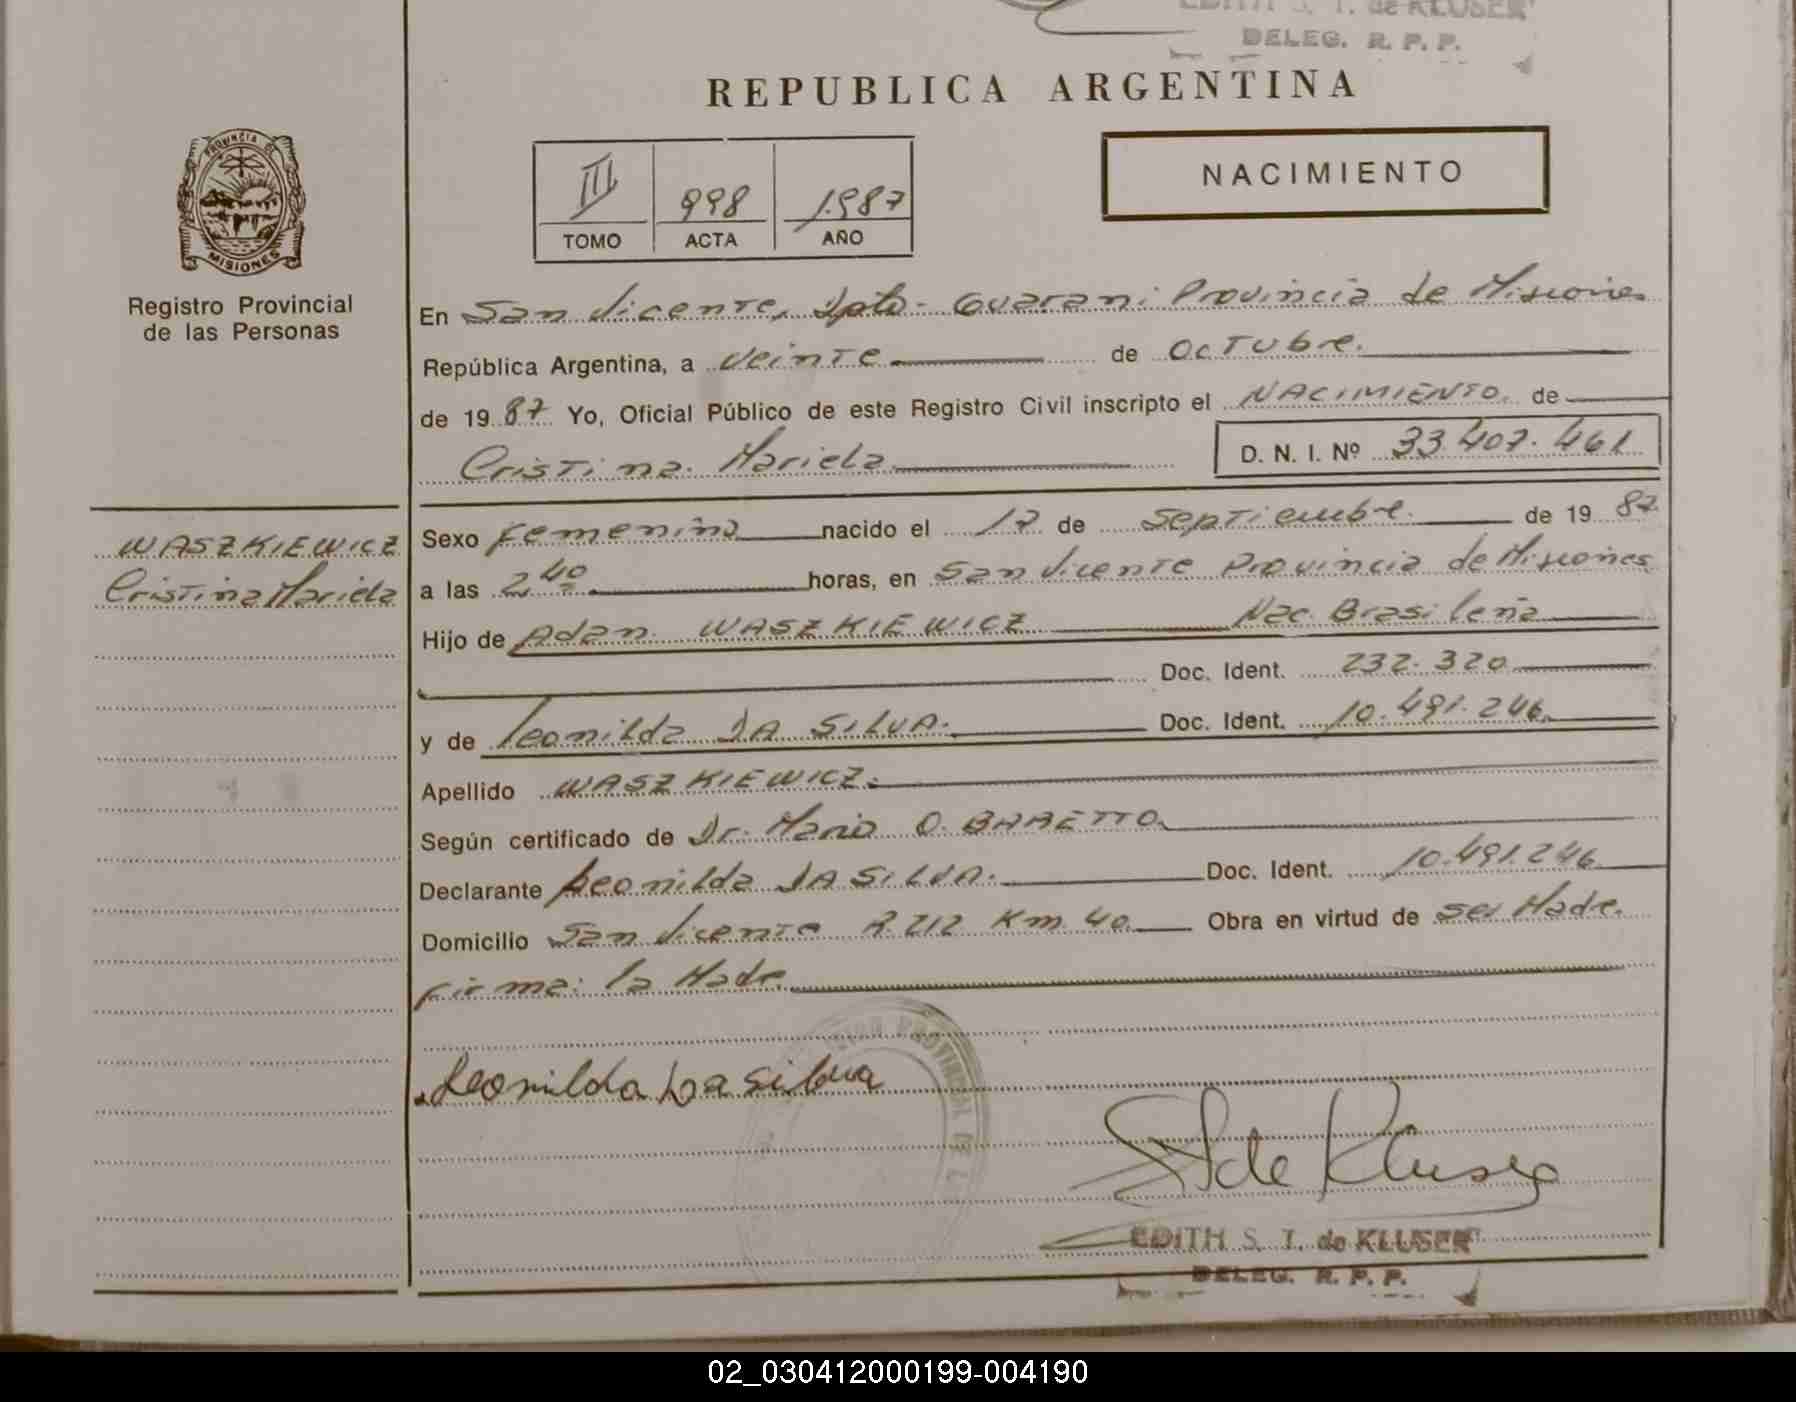 EDITH S. T. de KLUSER
DELEG. R. P. P.
REPUBLICA ARGENTINA
PROVINCIA DE
MISIONES
Registro Provincial
de las Personas
III 998 1.987
TOMO ACTA AÑO
NACIMIENTO
En San Vicente, Dpto. Guarani Provincia de Misiones
República Argentina, a veinte de octubre.
de 19 87 Yo, Oficial Público de este Registro Civil inscripto el NACIMIENTO. de
Cristina Mariela
D. N. I. Nº 33.407.461
WASZKIEWICZ
Cristina Mariela
Sexo Femenino nacido el 17 de Septiembre. de 19 87
a las 2,40 horas, en San Vicente Provincia de Misiones
Hijo de Adan WASZKIEWICZ Nac. Brasileña
Doc. Ident. 232.320
y de Leonilda DA SILVA. Doc. Ident. 10.491.246
Apellido WASZKIEWICZ.
Según certificado de Dr. Mario O. BARETTO
Declarante Leonilda DA SILVA. Doc. Ident. 10.491.246
Domicilio San Vicente R.212 Km 40. Obra en virtud de ser Madre.
Firma: la Madre
Leonilda Da silva
EDITH S. T. de KLUSER
DELEG. R. P. P.
02_030412000199-004190